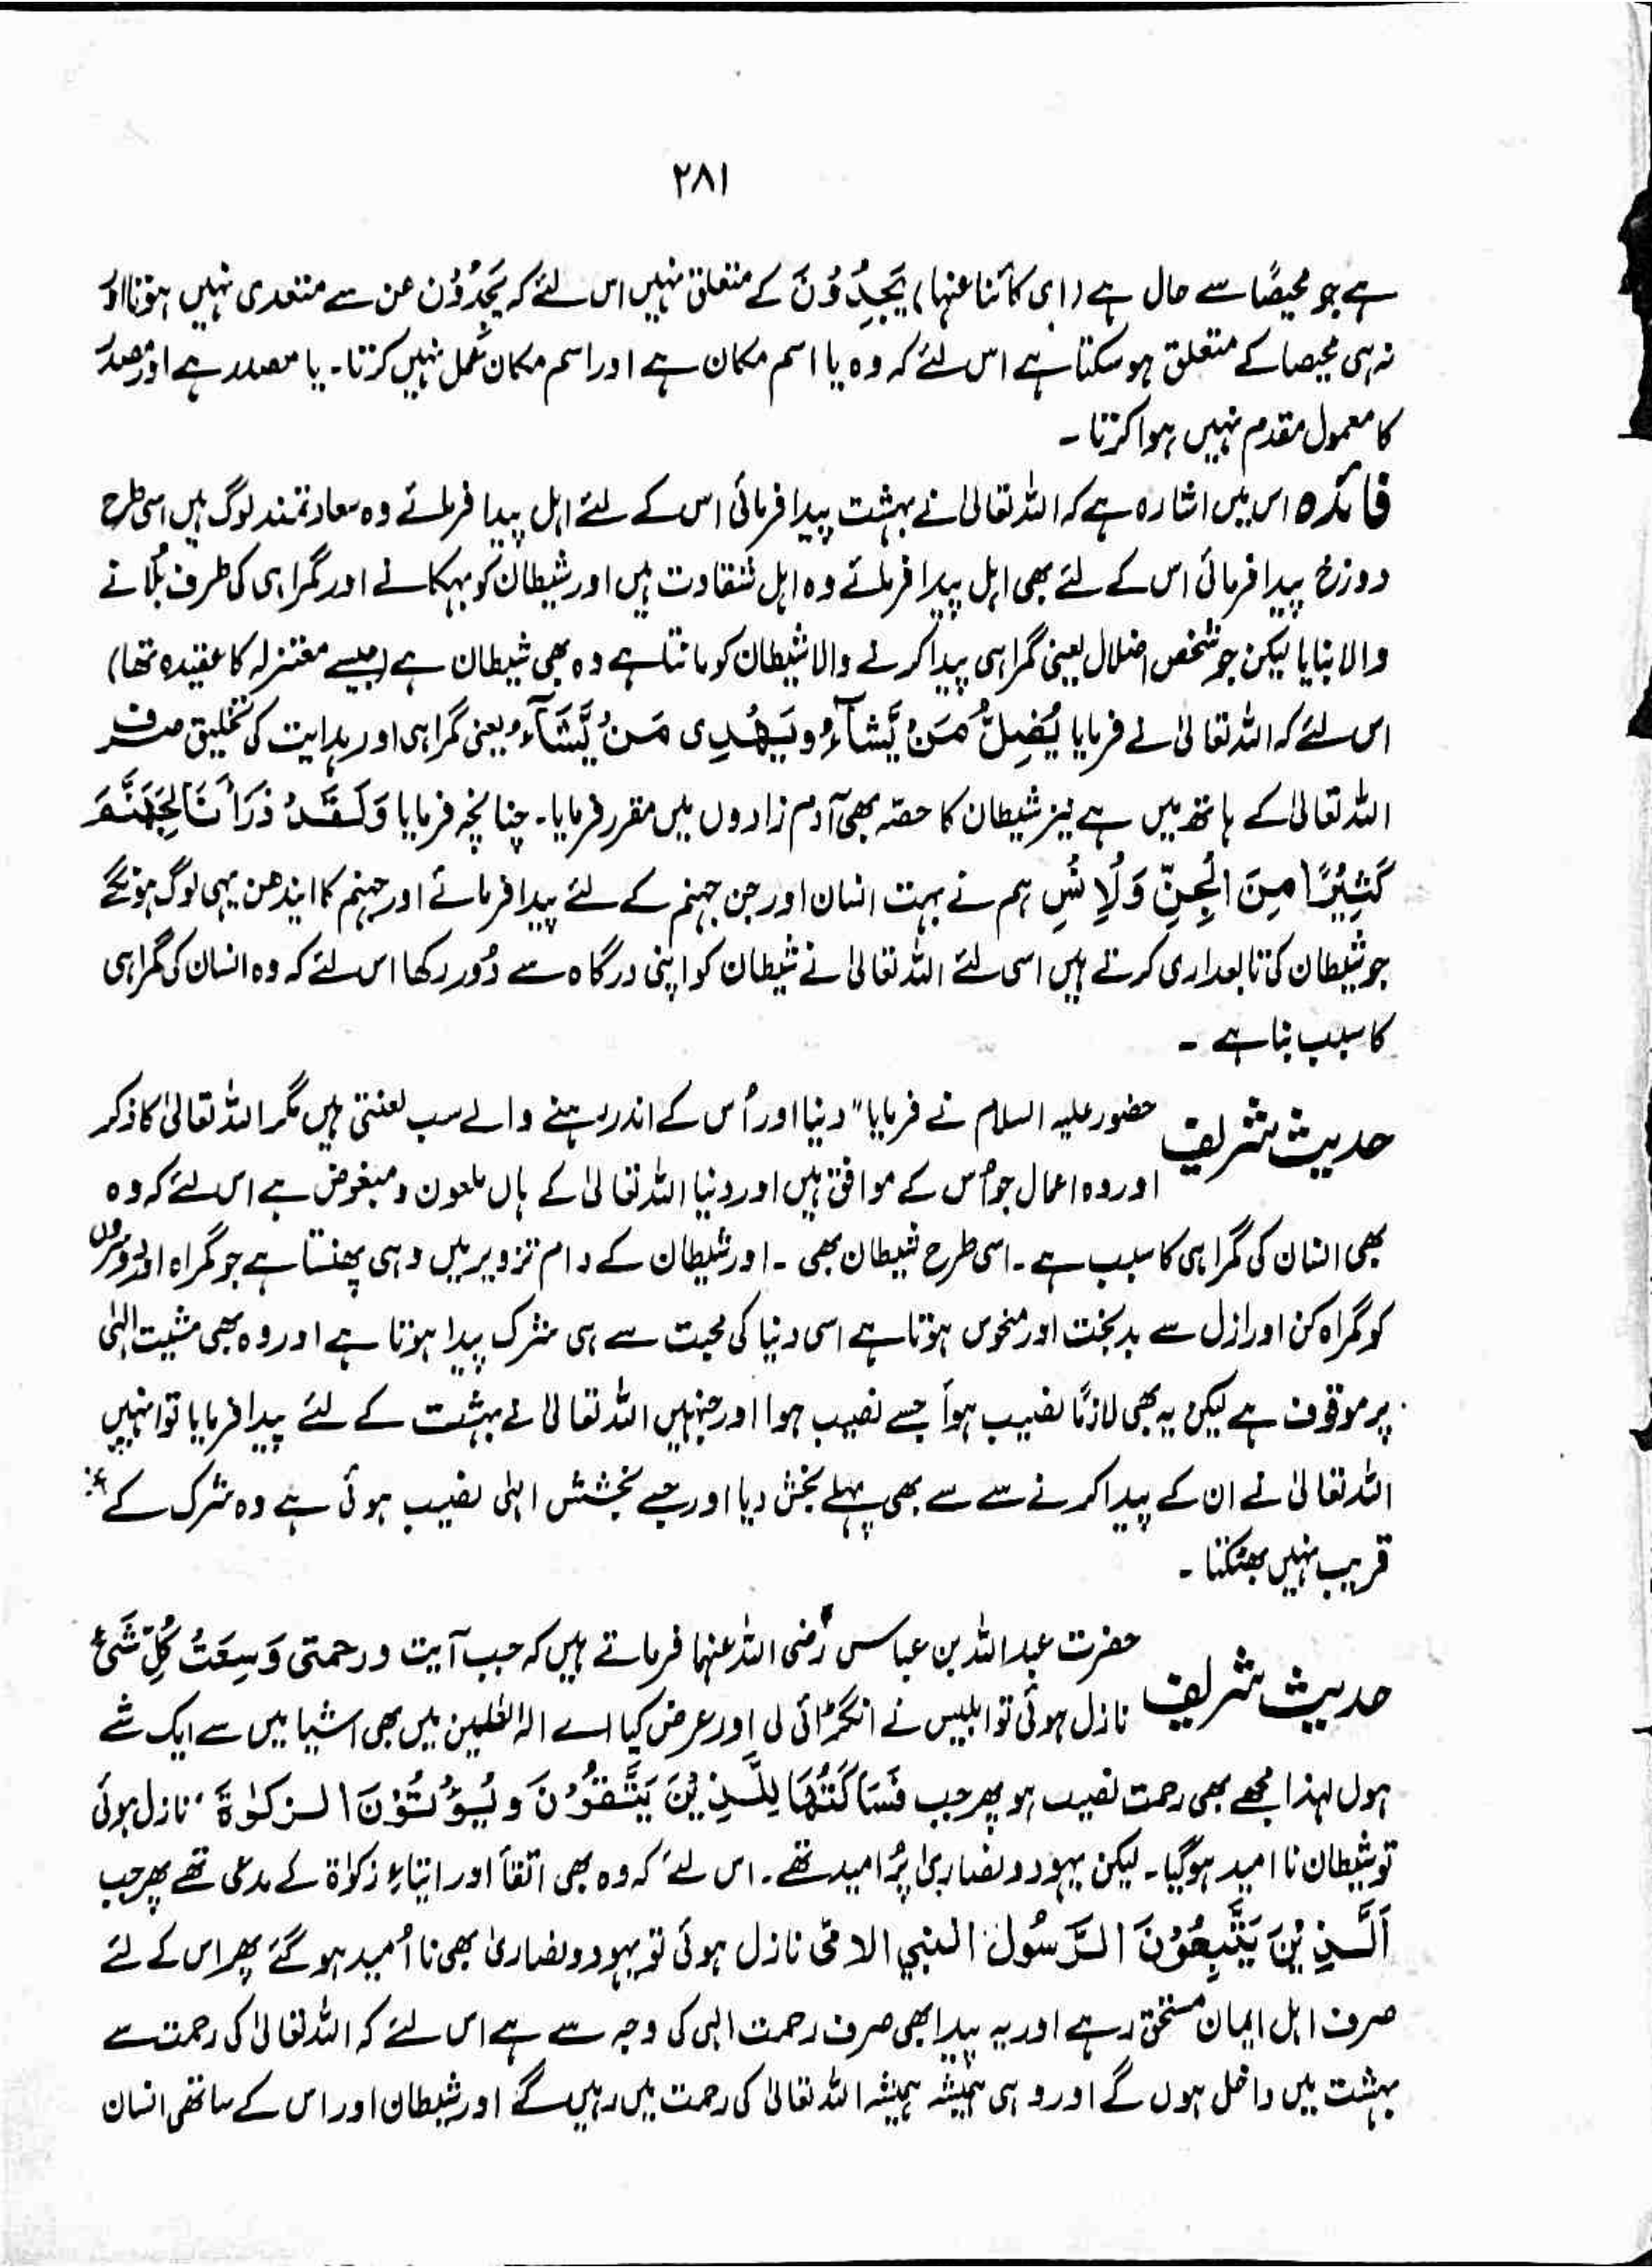 ۲۸۱
ہے جو محیصًا سے حال ہے (ای کائنا عنہا) یَجِدُوْنَ کے متعلق نہیں اس لئے کہ یَجِدُوْن عن سے متعدی نہیں ہوتا اور
نہ ہی محیصا کے متعلق ہو سکتا ہے اس لئے کہ وہ یا اسم مکان ہے اور اسم مکان عمل نہیں کرتا۔ یا مصدر ہے اور مصدر
کا معمول مقدم نہیں ہوا کرتا ۔
فائدہ اس میں اشارہ ہے کہ اللہ تعالیٰ نے بہشت پیدا فرمائی اس کے لئے اہل پیدا فرمائے وہ سعادتمند لوگ ہیں اسی طرح
دوزخ پیدا فرمائی اس کے لئے بھی اہل پیدا فرمائے وہ اہل شقاوت ہیں اور شیطان کو بہکانے اور گمراہی کی طرف بُلانے
والا بنایا لیکن جو شخص اضلال یعنی گمراہی پیدا کرنے والا شیطان کو مانتا ہے وہ بھی شیطان ہے (جیسے معتزلہ کا عقیدہ تھا)
اس لئے کہ اللہ تعالیٰ نے فرمایا یُضِلُّ مَنْ یَّشَآءُ ویَھْدِی مَنْ یَّشَآءُ یعنی گمراہی اور ہدایت کی تخلیق صرف
اللہ تعالیٰ کے ہاتھ میں ہے نیز شیطان کا حصّہ بھی آدم زادوں میں مقرر فرمایا۔ چنانچہ فرمایا وَلَقَدْ ذَرَأْنَا لِجَھَنَّمَ
کَثِیْرًا مِنَ الْجِنِّ وَلْاِنْسِ ہم نے بہت انسان اور جن جہنم کے لئے پیدا فرمائے اور جہنم کا ایندھن یہی لوگ ہونگے
جو شیطان کی تابعداری کرتے ہیں اسی لئے اللہ تعالیٰ نے شیطان کو اپنی درگاہ سے دُور رکھا اس لئے کہ وہ انسان کی گمراہی
کا سبب بنا ہے ۔
حدیث شریف حضور علیہ السلام نے فرمایا "دنیا اور اُس کے اندر رہنے والے سب لعنتی ہیں مگر اللہ تعالیٰ کا ذکر
اور وہ اعمال جو اُس کے موافق ہیں اور دنیا اللہ تعالیٰ کے ہاں ملعون ومبغوض ہے اس لئے کہ وہ
بھی انسان کی گمراہی کا سبب ہے۔ اسی طرح شیطان بھی ۔ اور شیطان کے دام تزویر میں وہی پھنستا ہے جو گمراہ اور دوسروں
کو گمراہ کن اور ازل سے بدبخت اور منحوس ہوتا ہے اسی دنیا کی محبت سے ہی شرک پیدا ہوتا ہے اور وہ بھی مشیت الٰہی
پر موقوف ہے لیکن یہ بھی لازمًا نصیب ہوأ جسے نصیب ہوا اور جنہیں اللہ تعالیٰ نے بہشت کے لئے پیدا فرمایا تو انہیں
اللہ تعالیٰ نے ان کے پیدا کرنے سے سے بھی پہلے بخش دیا اور جسے بخشش الٰہی نصیب ہوئی ہے وہ شرک کے
قریب نہیں بھٹکتا ۔
حدیث شریف حضرت عبداللہ بن عباس رضی اللہ عنہما فرماتے ہیں کہ جب آیت ورحمتی وَسِعَتْ کُلِّ شَیْءٍ
نازل ہوئی تو ابلیس نے انگڑائی لی اور عرض کیا اے الہ العٰلمین میں بھی اشیا میں سے ایک شے
ہوں لہذا مجھے بھی رحمت نصیب ہو پھر جب فَسَاَکْتُبُھَا لِلَّذِیْنَ یَتَّقُوْنَ ویُؤْتُوْنَ الزکوٰۃَ نازل ہوئی
تو شیطان نا امید ہوگیا۔ لیکن یہود ونصاریٰ پُر امید تھے۔ اس لئے کہ وہ بھی اتقأ اور ایتاء زکوٰۃ کے مدعی تھے پھر جب
اَلَّذِیْنَ یَتَّبِعُوْنَ الرَّسُوْلَ النبی الامّی نازل ہوئی تو یہود ونصاریٰ بھی نا اُمید ہوگئے پھر اس کے لئے
صرف اہل ایمان مستحق رہے اور یہ پیدا بھی صرف رحمت الٰہی کی وجہ سے ہے اس لئے کہ اللہ تعالیٰ کی رحمت سے
بہشت میں داخل ہوں گے اور وہی ہمیشہ ہمیشہ اللہ تعالیٰ کی رحمت میں رہیں گے اور شیطان اور اس کے ساتھی انسان